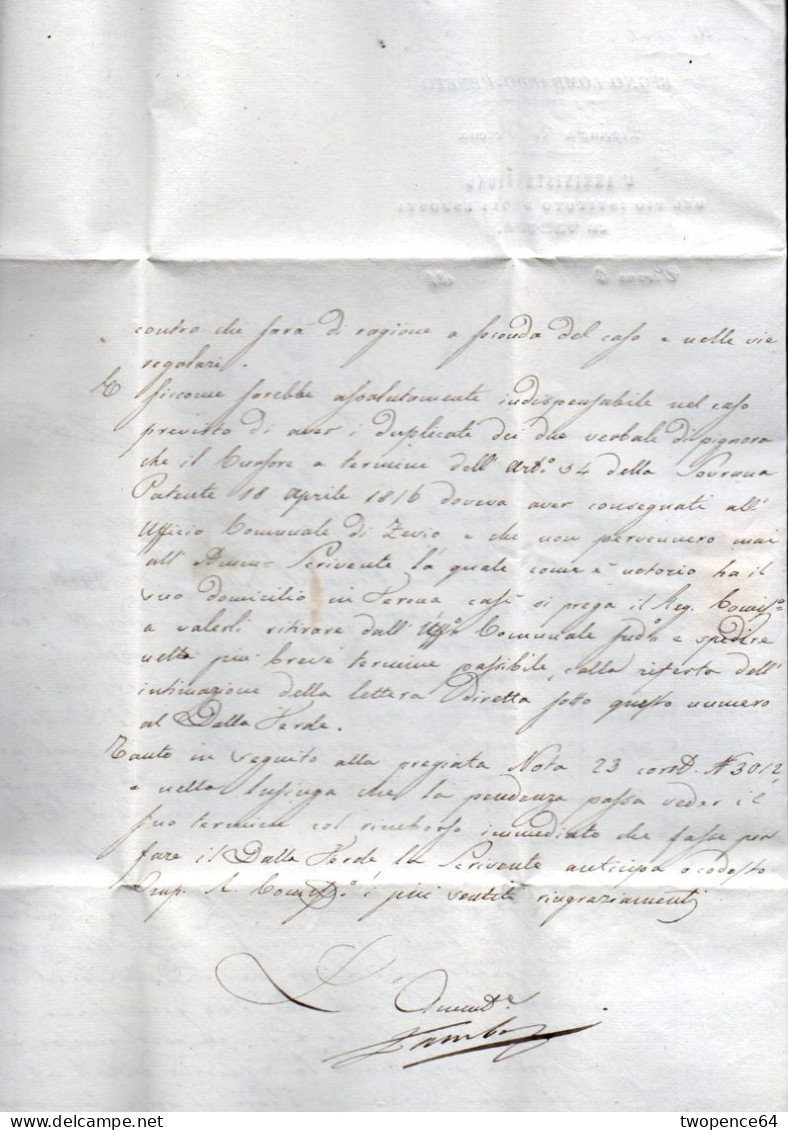 contro chi sarà di ragione a seconda del caso e nelle vie
regolari.
E siccome sarebbe assolutamente indispensabile nel caso
previsto di aver i duplicati dei due verbale di pignora
che il Cursore a termini dell' Arto. 34 della Sovrana
Patente 18 aprile 1816 doveva aver consegnati all'
Ufficio Comunale di Zevio e che non pervennero mai
all' Amm= Scrivente la quale come è notorio ha il
suo domicilio in Verona così si prega il Reg. Commiso
a valersi ritirare dall' Uffo Comunale sudo e spedire
nella più breve termine possibile, colla riferta dell'
intimazione della lettera diretta sotto questo numero
al Dalla Verde.
Tanto in seguito alla pregiata Nota 23 corrd. N 3012,
e nella lusinga che la pendenza possa veder il
suo termine col rimborso immediato che fosse per
fare il Dalla Verde la Scrivente anticipa a codesto
Imp. R. Commo i più sentiti ringraziamenti
L' Ammde
REGNO LOMBARDO-VENETO
Provincia di Verona
L'AMMINISTRAZIONE
DEL PIO ISTITUTO DEGLI ESPOSTI
IN VERONA.
Verona li 184
delcampe.net
twopence64